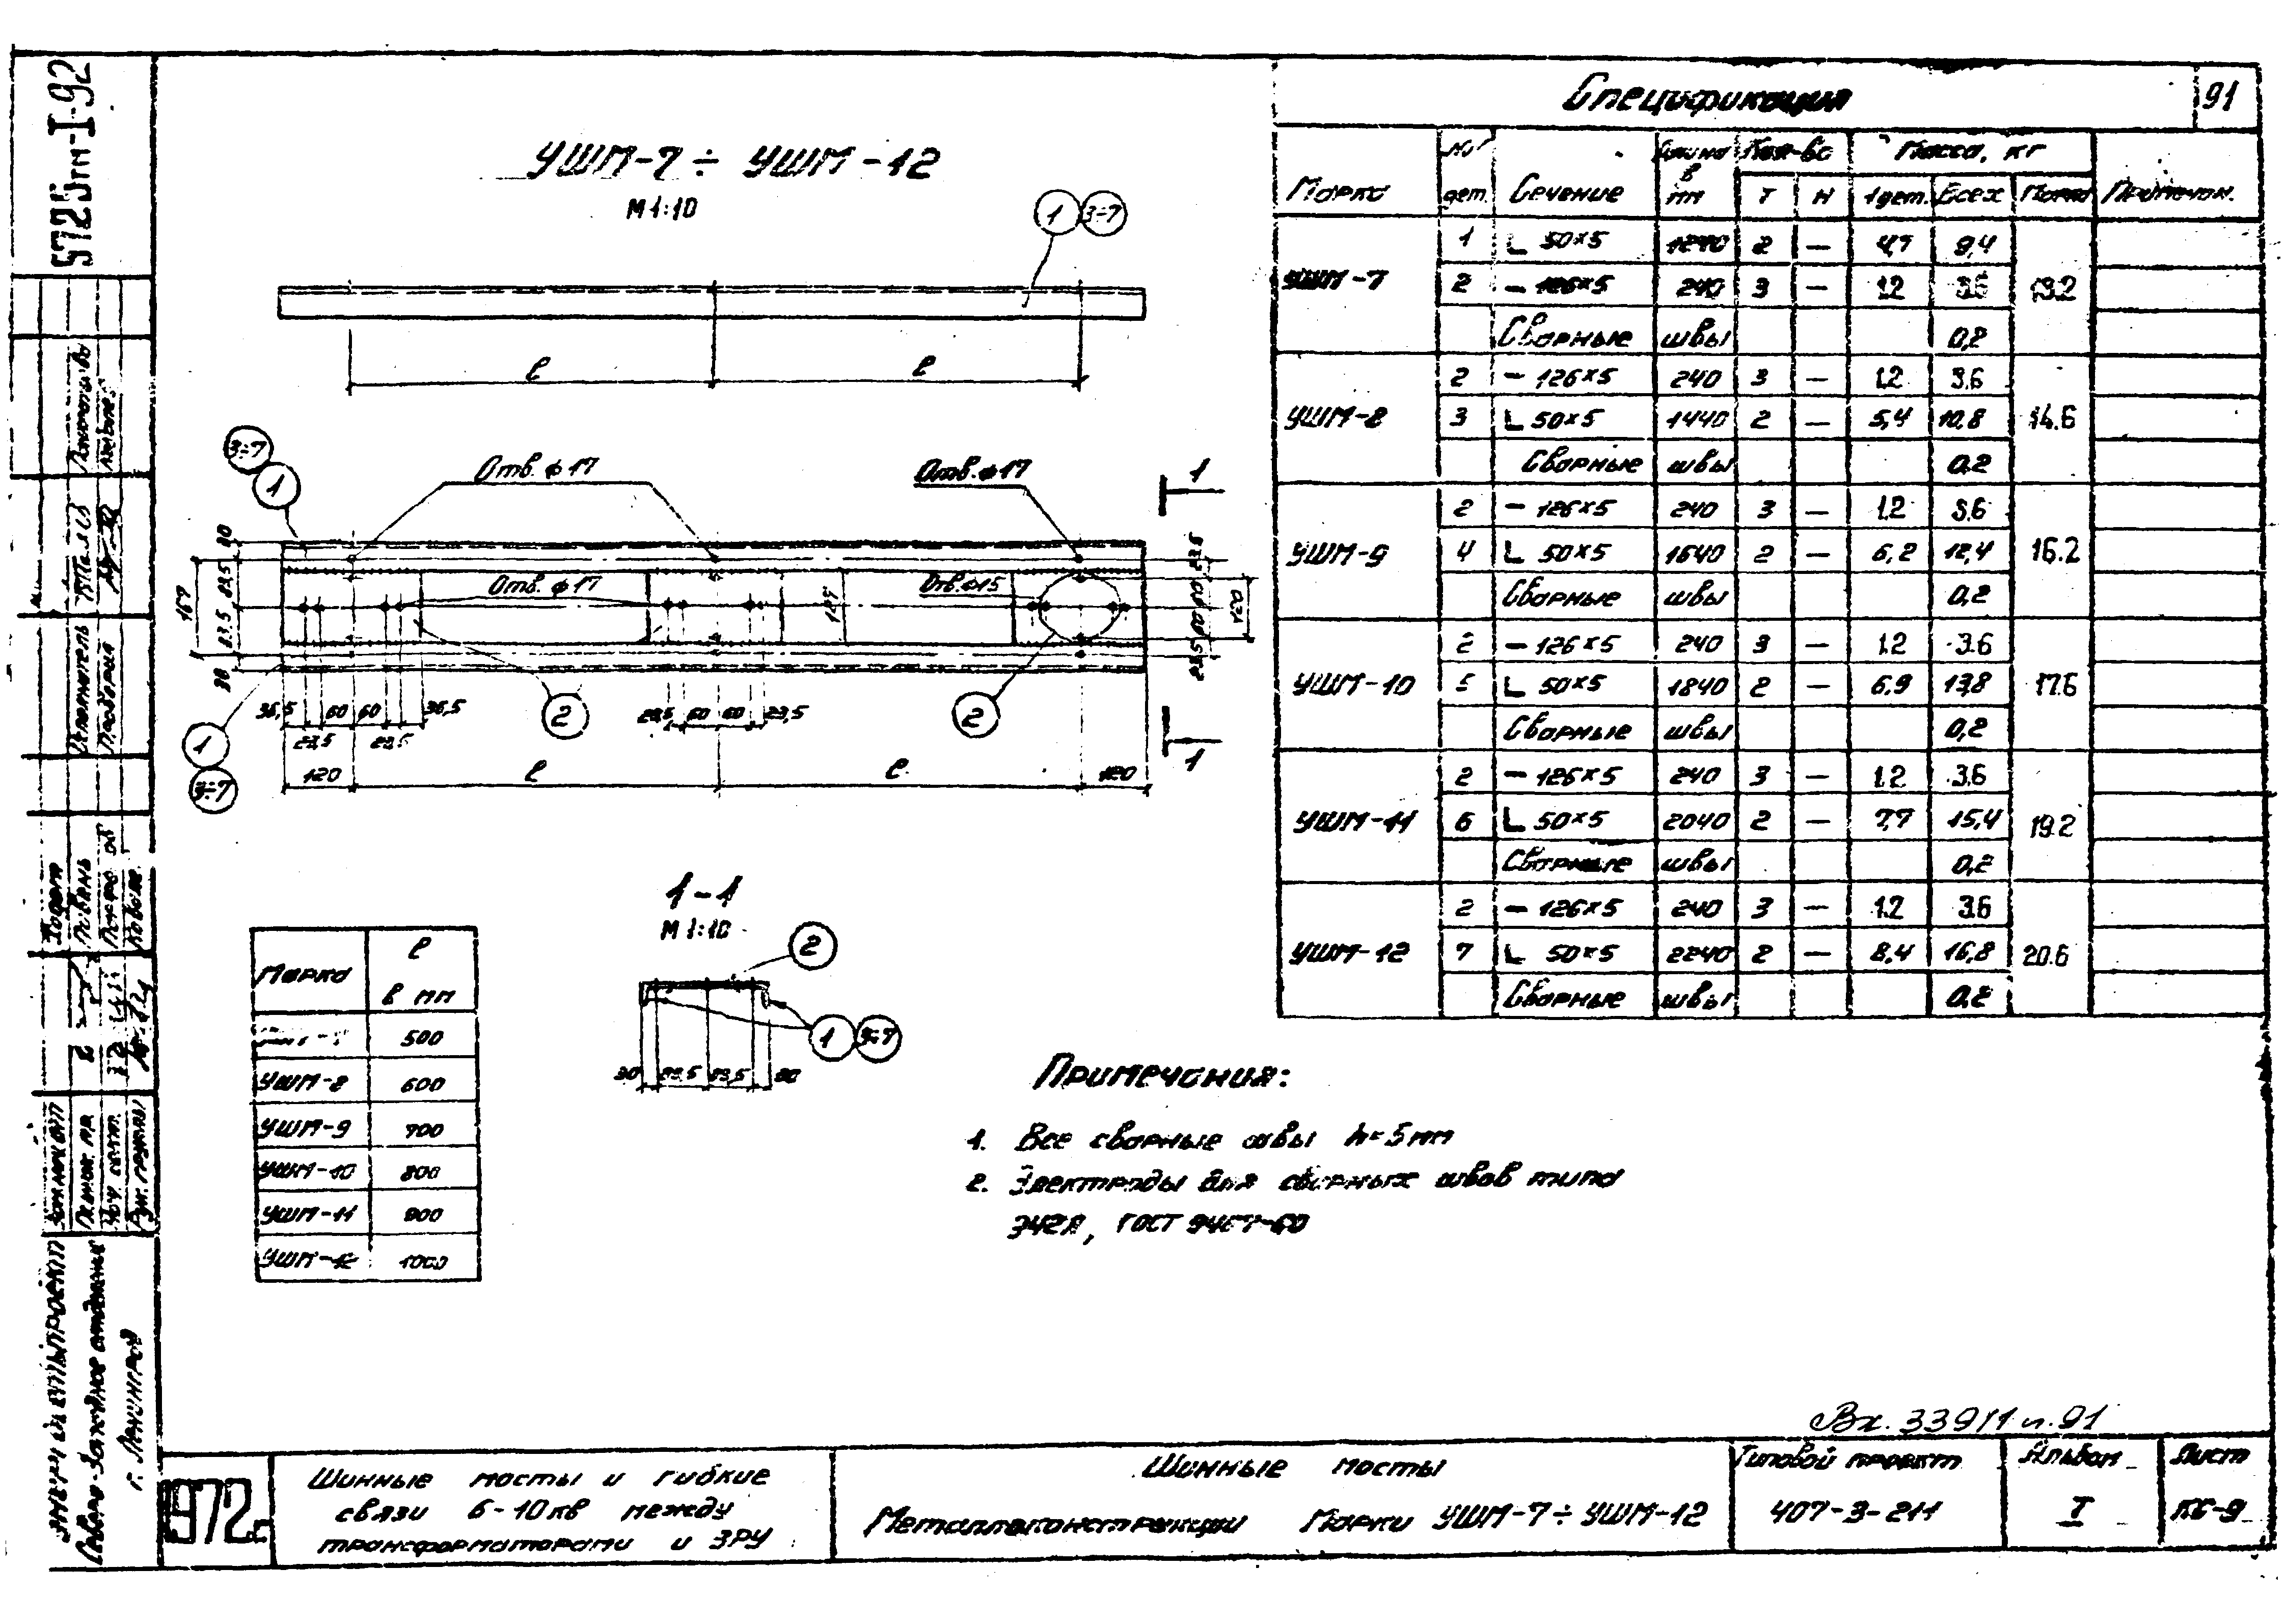 5725тм-I-92
Спецификация
91
УШМ-7 ÷ УШМ-12
М 1:10
Марка № дет. Сечение Длина в мм Кол-во Т Н Масса, кг 1 дет. Всех Марки Примечан.
УШМ-7 1 L 50×5 1240 2 — 4,7 9,4 13.2
2 — 126×5 240 3 — 1.2 3.6
Сварные швы 0,2
УШМ-8 2 — 126×5 240 3 — 1.2 3.6 14.6
3 L 50×5 1440 2 — 5,4 10,8
Сварные швы 0,2
УШМ-9 2 — 126×5 240 3 — 1.2 3.6 16.2
4 L 50×5 1640 2 — 6,2 12,4
Сварные швы 0,2
УШМ-10 2 — 126×5 240 3 — 1.2 3.6 17.6
5 L 50×5 1840 2 — 6,9 13,8
Сварные швы 0,2
УШМ-11 2 — 126×5 240 3 — 1.2 3.6 19.2
6 L 50×5 2040 2 — 7,7 15,4
Сварные швы 0,2
УШМ-12 2 — 126×5 240 3 — 1.2 3.6 20.6
7 L 50×5 2240 2 — 8,4 16,8
Сварные швы 0,2
1 3÷7
ℓ ℓ
3÷7
1
Отв. ф 17
Отв. ф 17
1
Отв. ф 17
Отв. ф 15
167
30 83,5 83,5 30
127
36,5 60 60 36,5
23,5 23,5
23,5 60 60 23,5
2
2
1
3÷7
120 ℓ ℓ 120
1
1-1
М 1:10
2
1 3÷7
30 83,5 83,5 30
Марка ℓ в мм
500
УШМ-8 600
УШМ-9 700
УШМ-10 800
УШМ-11 900
УШМ-12 1000
Примечания:
1. Все сварные швы h=5мм
2. Электроды для сварных швов типа
Э42А, ГОСТ 9467-60
Вх. 339/1 л. 91
Исполнитель
Проверил
Энергосетьпроект
Северо-Западное отделение
г. Ленинград
1972г.
Шинные мосты и гибкие
связи 6-10кв между
трансформаторами и ЗРУ
Шинные мосты
Металлоконструкции Марки УШМ-7÷УШМ-12
Типовой проект
407-3-211
Альбом
I
Лист
КС-9